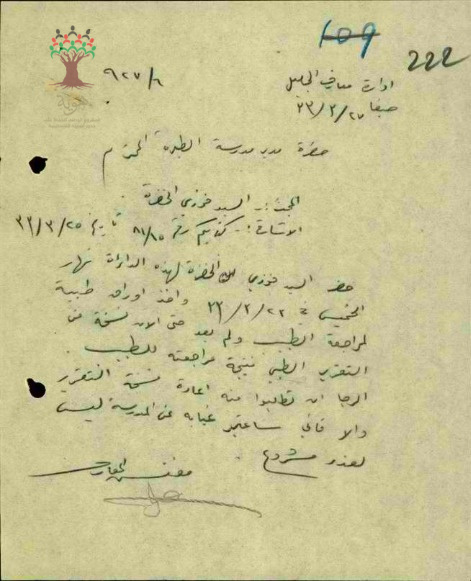 109
222
ادارة معارف الجليل
٩٢٧/٦
صفد ٣٣/٣/٢٧
حضرة مدير مدرسة الطيرة المحترم
البحث :- السيد فوزي الخضرة
الاشارة :- كتابكم رقم ٨١/٨٥ تاريخ ٣٣/٣/٢٥
حضر السيد فوزي الخضرة لهذه الدائرة نهار
الخميس في ٣٣/٣/٢٢ واخذ اوراق طبية
لمراجعة الطبيب ولم يعد حتى الان نسخة من
التقرير الطبي نتيجة مراجعته للطبيب.
الرجا ان تطلبوا منه اعادة نسخة التقرير
والا فاني ساعتبر غيابه عن المدرسة ليس
لعذر مشروع.
مفتش المعارف